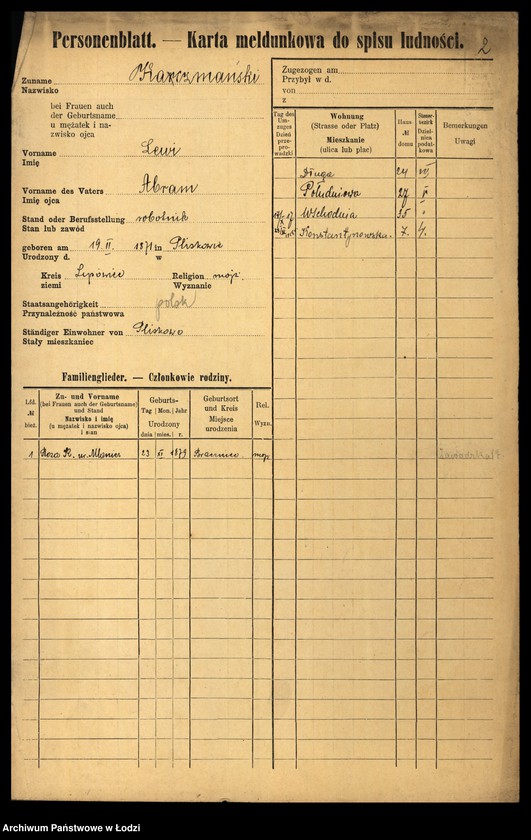 Personenblatt. — Karta meldunkowa do spisu ludności.
2
Zuname Karczmański
Nazwisko
bei Frauen auch
der Geburtsname
u mężatek i na-
zwisko ojca
Vorname Lewi
Imię
Vorname des Vaters Abram
Imię ojca
Stand oder Berufsstellung robotnik
Stan lub zawód
geboren am 19. II. 1871 in Pliskowie
Urodzony d. w
Kreis Lipowiec Religion mojż.
ziemi Wyznanie
Staatsangehörigkeit polak
Przynależność państwowa
Ständiger Einwohner von Pliskowo
Stały mieszkaniec
Zugezogen am
Przybył w d.
von
z
Tag des Um-zuges Dzień prze-prowadzki
Wohnung (Strasse oder Platz) Mieszkanie (ulica lub plac)
Haus-№ domu
Steuer-bezirk Dziel-nica podat-kowa
Bemerkungen Uwagi
Długa 24 VII
Południowa 27 V
Wschodnia 35 "
Konstantynowska. 7. 4.
Familienglieder. — Członkowie rodziny.
Lfd. № bież.
Zu- und Vorname (bei Frauen auch der Geburtsname) und Stand Nazwisko i imię (u mężatek i nazwisko ojca) i stan
Geburts- Tag Mon. Jahr Urodzony dnia mies. r.
Geburtsort und Kreis Miejsce urodzenia
Rel. Wyzn.
1 Roza K. 23 1879 mojż.
Archiwum Państwowe w Łodzi